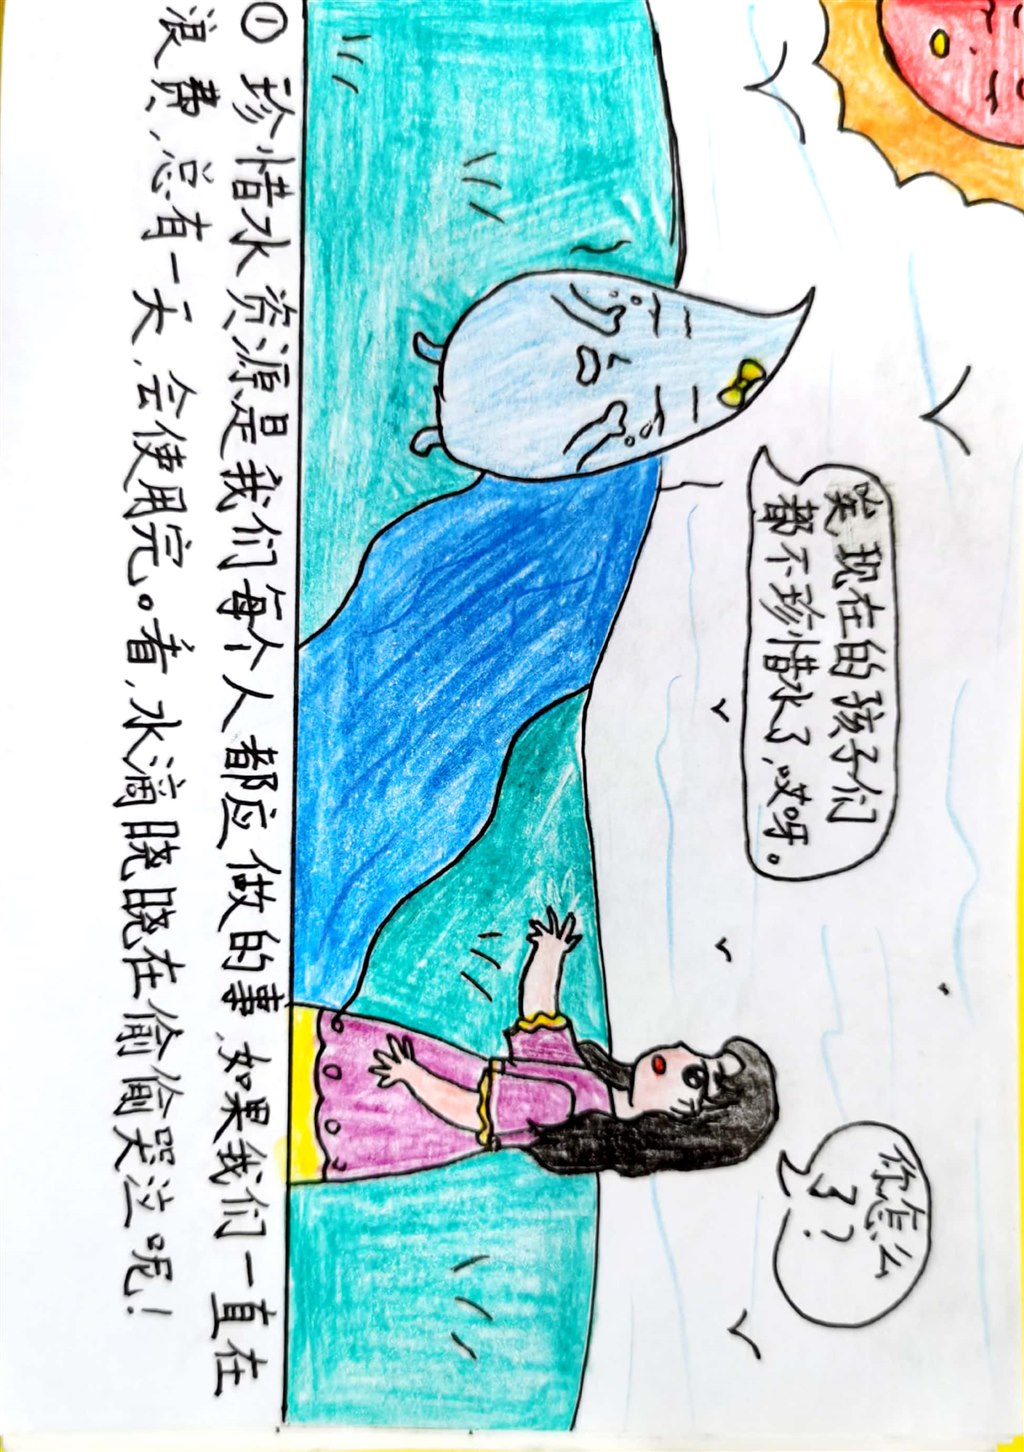 现在的孩子们
都不珍惜水了,哎呀。
你怎么
了?
① 珍惜水资源是我们每个人都应做的事,如果我们一直在
浪费,总有一天,会使用完。看,水滴晓晓在偷偷哭泣呢!